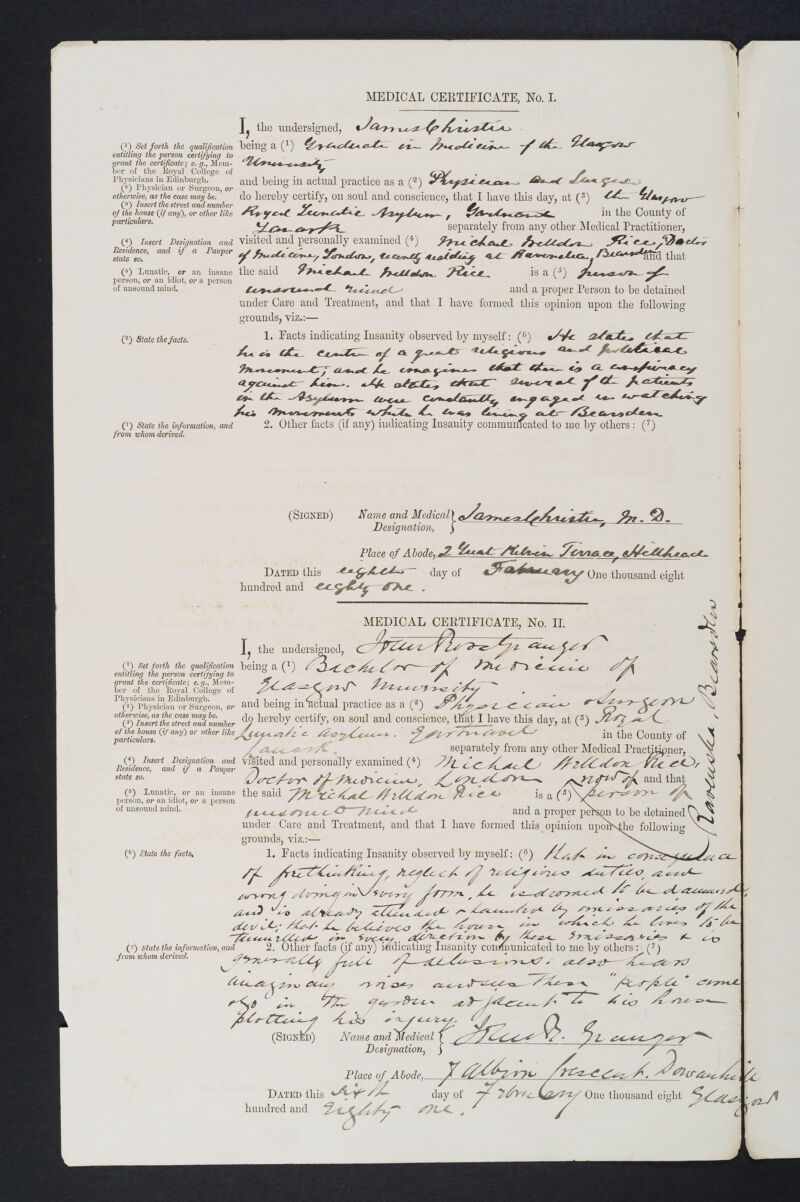 MEDICAL CERTIFICATE, No. I.
I, the undersigned, James Christie
being a (1) Graduate in Medicine of the Glasgow
University
and being in actual practice as a (2) Physician and Surgeon
do hereby certify, on soul and conscience, that I have this day, at (3) the Glasgow
Royal Lunatic Asylum, Gartnavel in the County of
Lanark separately from any other Medical Practitioner,
visited and personally examined (4) Michael Welldon Rice, Doctor
of Medicine, London, recently residing at Ravenslea, Bearsden and that
the said Michael Welldon Rice is a (5) person of
unsound mind and a proper Person to be detained
under Care and Treatment, and that I have formed this opinion upon the following
grounds, viz.:—
1. Facts indicating Insanity observed by myself: (6) He states that
he is the center of a great religious and political
movement; and he imagines that there is a conspiracy
against him. He states that several of the patients
in the Asylum were constantly engaged in watching
his movements while he was living at Bearsden
2. Other facts (if any) indicating Insanity communicated to me by others: (7)
(1) Set forth the qualification
entitling the person certifying to
grant the certificate; e. g., Mem-
ber of the Royal College of
Physicians in Edinburgh.
(2) Physician or Surgeon, or
otherwise, as the case may be.
(3) Insert the street and number
of the house (if any), or other like
particulars.
(4) Insert Designation and
Residence, and if a Pauper
state so.
(5) Lunatic, or an insane
person, or an idiot, or a person
of unsound mind.
(6) State the facts.
(7) State the information, and
from whom derived.
(SIGNED) Name and Medical Designation, James Christie, M. D.
Place of Abode, 2 Great Kelvin Terrace, Hillhead
DATED this eighth day of February One thousand eight
hundred and eighty one.
MEDICAL CERTIFICATE, No. II.
I, the undersigned, John Granger
being a (1) Bachelor of Medicine of
Glasgow University
and being in actual practice as a (2) Physician & Surgeon
do hereby certify, on soul and conscience, that I have this day, at (3) Royal
Lunatic Asylum. Gartnavel in the County of
Lanark. separately from any other Medical Practitioner,
visited and personally examined (4) Michael Welldon Rice,
Doctor of Medicine, London now of and that
Ravenslea, Bearsden
the said Michael Welldon Rice is a (5) person of
unsound mind and a proper person to be detained
under Care and Treatment, and that I have formed this opinion upon the following
grounds, viz.:—
1. Facts indicating Insanity observed by myself: (6) that in consequence
of freethinking, neglect of religious duties, and
wrong doing in every form, he is doomed to be damned,
and is already attended & haunted by emissaries of the
devil; that he believes the house in which he lives to be
tunnelled in every direction by these emissaries & is
2. Other facts (if any) indicating Insanity communicated to me by others: (7)
generally full of delusions: also hears
imaginary noises and sees these "people" come
& go in the garden adjacent to his house
plotting his injury.
(1) Set forth the qualification
entitling the person certifying to
grant the certificate; e. g., Mem-
ber of the Royal College of
Physicians in Edinburgh.
(2) Physician or Surgeon, or
otherwise, as the case may be.
(3) Insert the street and number
of the house (if any) or other like
particulars.
(4) Insert Designation and
Residence, and if a Pauper
state so.
(5) Lunatic, or an insane
person, or an idiot, or a person
of unsound mind.
(6) State the facts.
(7) State the information, and
from whom derived.
(SIGNED) Name and Medical Designation, John R. Granger
Place of Abode, 7 Albion Crescent. Dowanhill
Glasgow
DATED this sixth day of February One thousand eight
hundred and Eighty one.